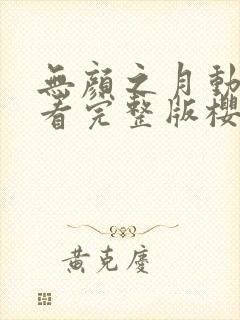 無顏之月動
看完整版櫻
黄克慶